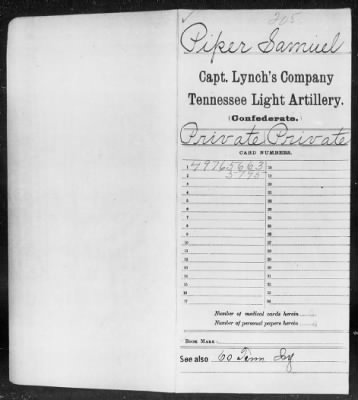 205.
Piper Samuel
Capt. Lynch's Company
Tennessee Light Artillery.
(Confederate.)
Private Private
CARD NUMBERS.
1 49765663 18
2 5795 19
3 20
4 21
5 22
6 23
7 24
8 25
9 26
10 27
11 28
12 29
13 30
14 31
15 32
16 33
17 34
Number of medical cards herein
Number of personal papers herein
BOOK MARK:
See also 60 Tenn Inf